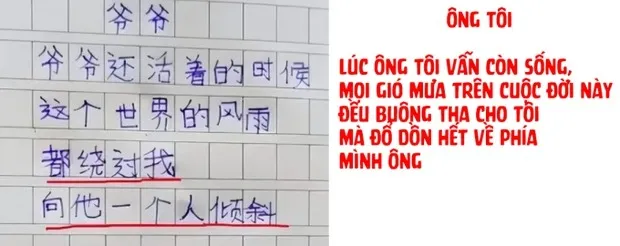 爷爷
爷爷还活着的时候
这个世界的风雨
都绕过我
向他一个人倾斜
ÔNG TÔI
LÚC ÔNG TÔI VẪN CÒN SỐNG,
MỌI GIÓ MƯA TRÊN CUỘC ĐỜI NÀY
ĐỀU BUÔNG THA CHO TÔI
MÀ ĐỔ DỒN HẾT VỀ PHÍA
MÌNH ÔNG